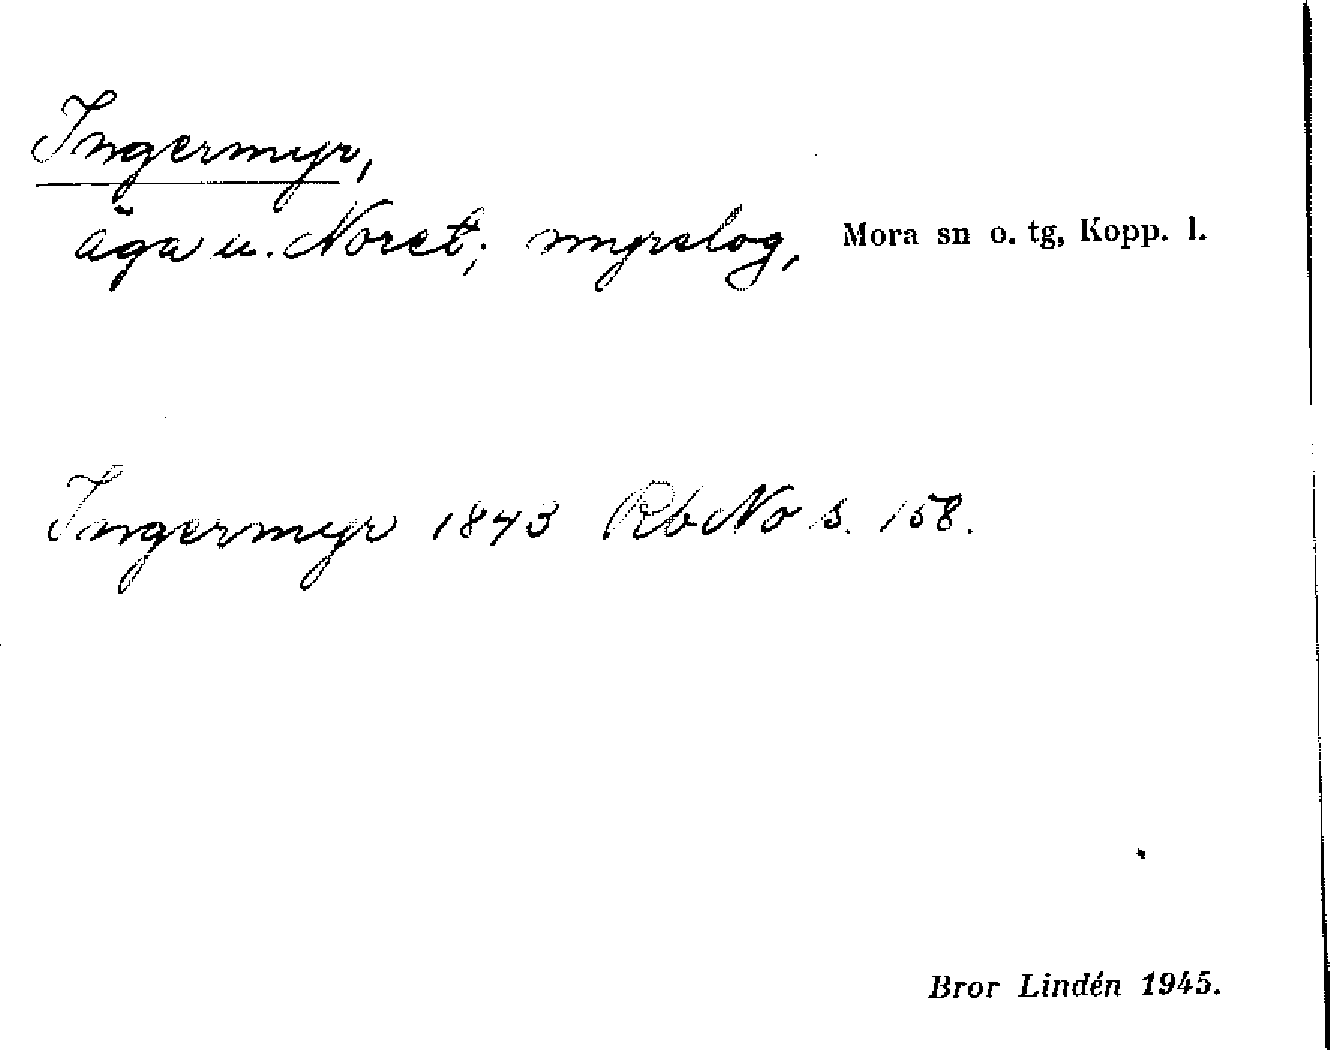 Ingermyr,
äga u. Noret; myrslog, Mora sn o. tg, Kopp. l.
Ingermyr 1843 RbNo s. 158.
Bror Lindén 1945.